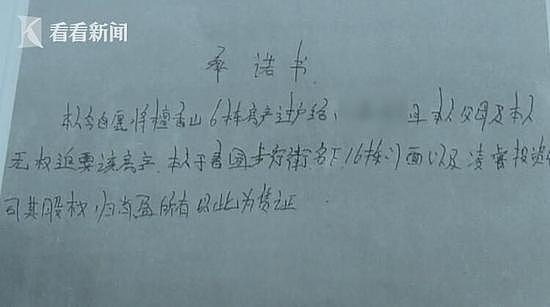 看看新闻
承诺书
本人自愿将檀香山6栋房产过户给, 且本人父母及本人
无权追要该房产. 本人于 国步行街名下16栋门面以及凌 投资
司其股权归 所有 以此为凭证.